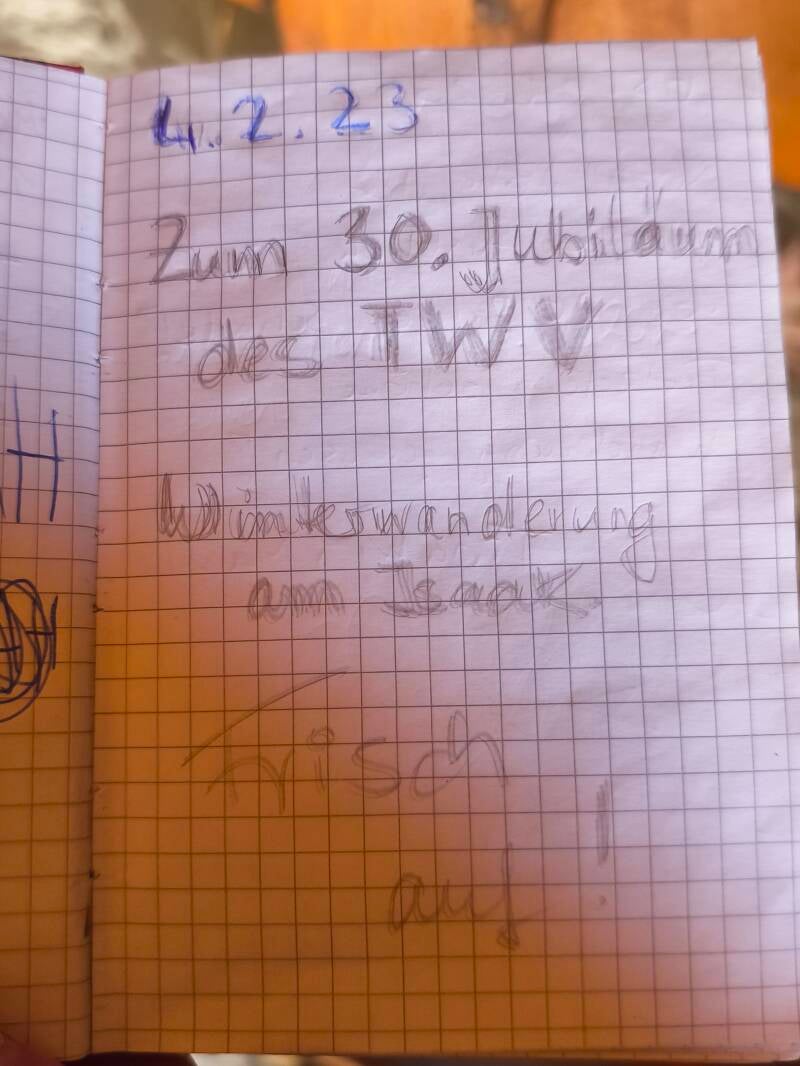 4.2.23
Zum 30. Jubiläum
des TWV
Winterwanderung
am Isaak
Frisch
auf!
H